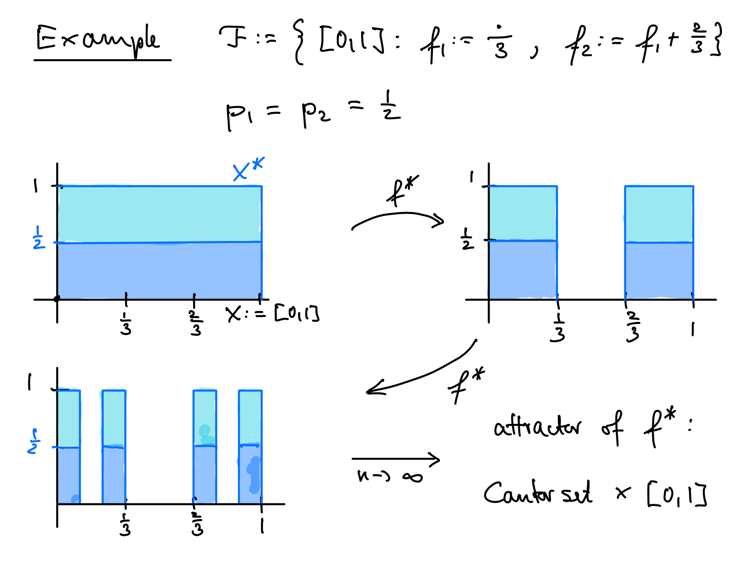 Example F := { [0,1] : f₁ := ·/3 , f₂ := f₁ + 2/3 }
p₁ = p₂ = 1/2
X*
1
1/2
1/3 2/3 X := [0,1]
f*
1
1/2
1/3 2/3 1
f*
1
1/2
1/3 2/3 1
n→∞
attractor of f* :
Cantor set × [0,1]